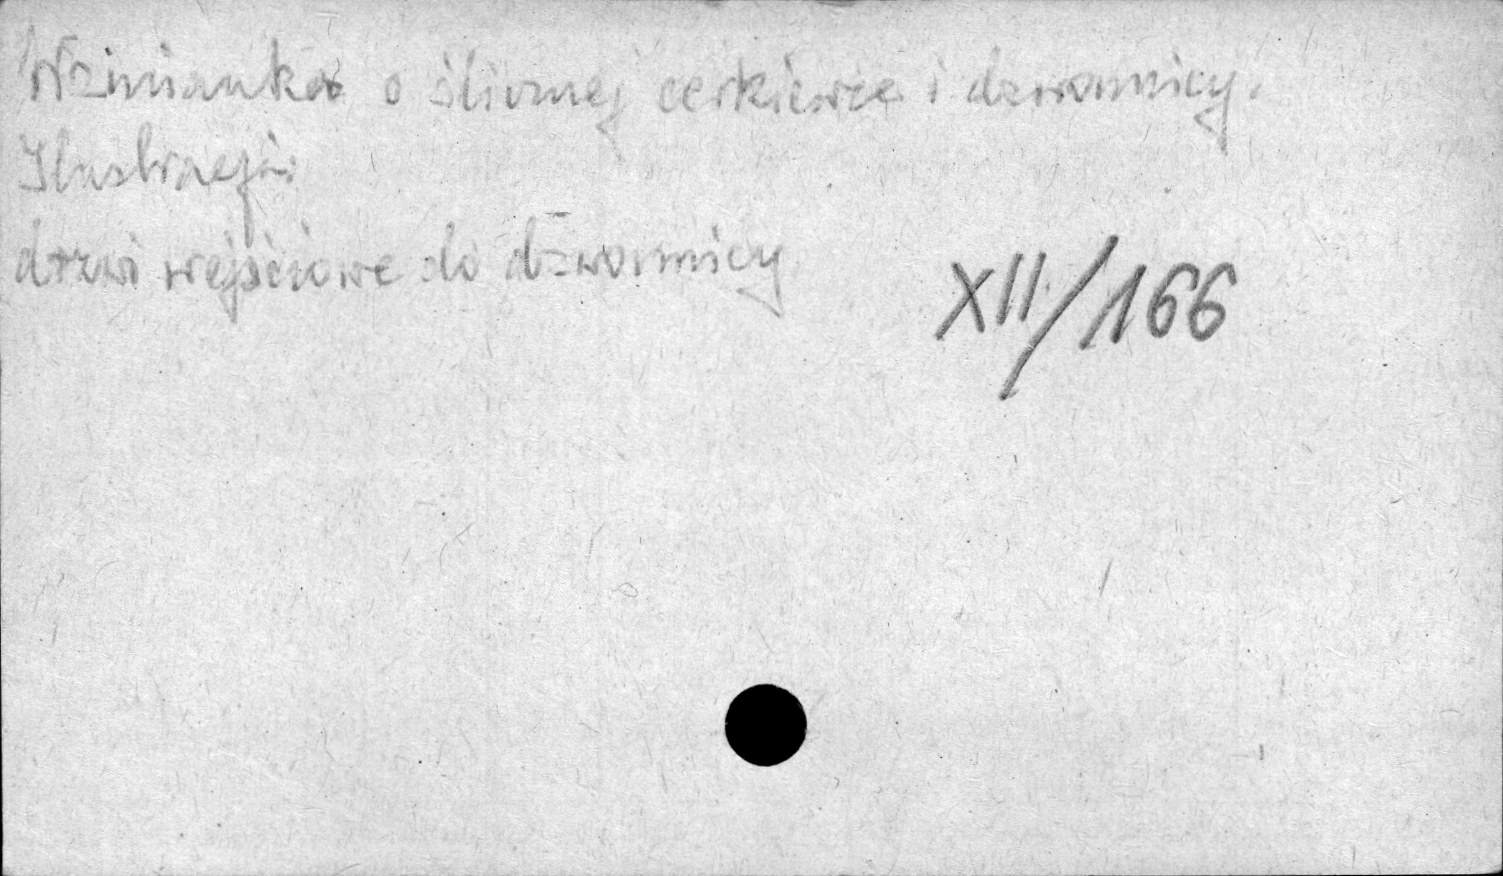 Wzmianka o ślicznej cerkiewce i dzwonnicy.
Ilustracja:
drzwi wejściowe do dzwonnicy
XII/166